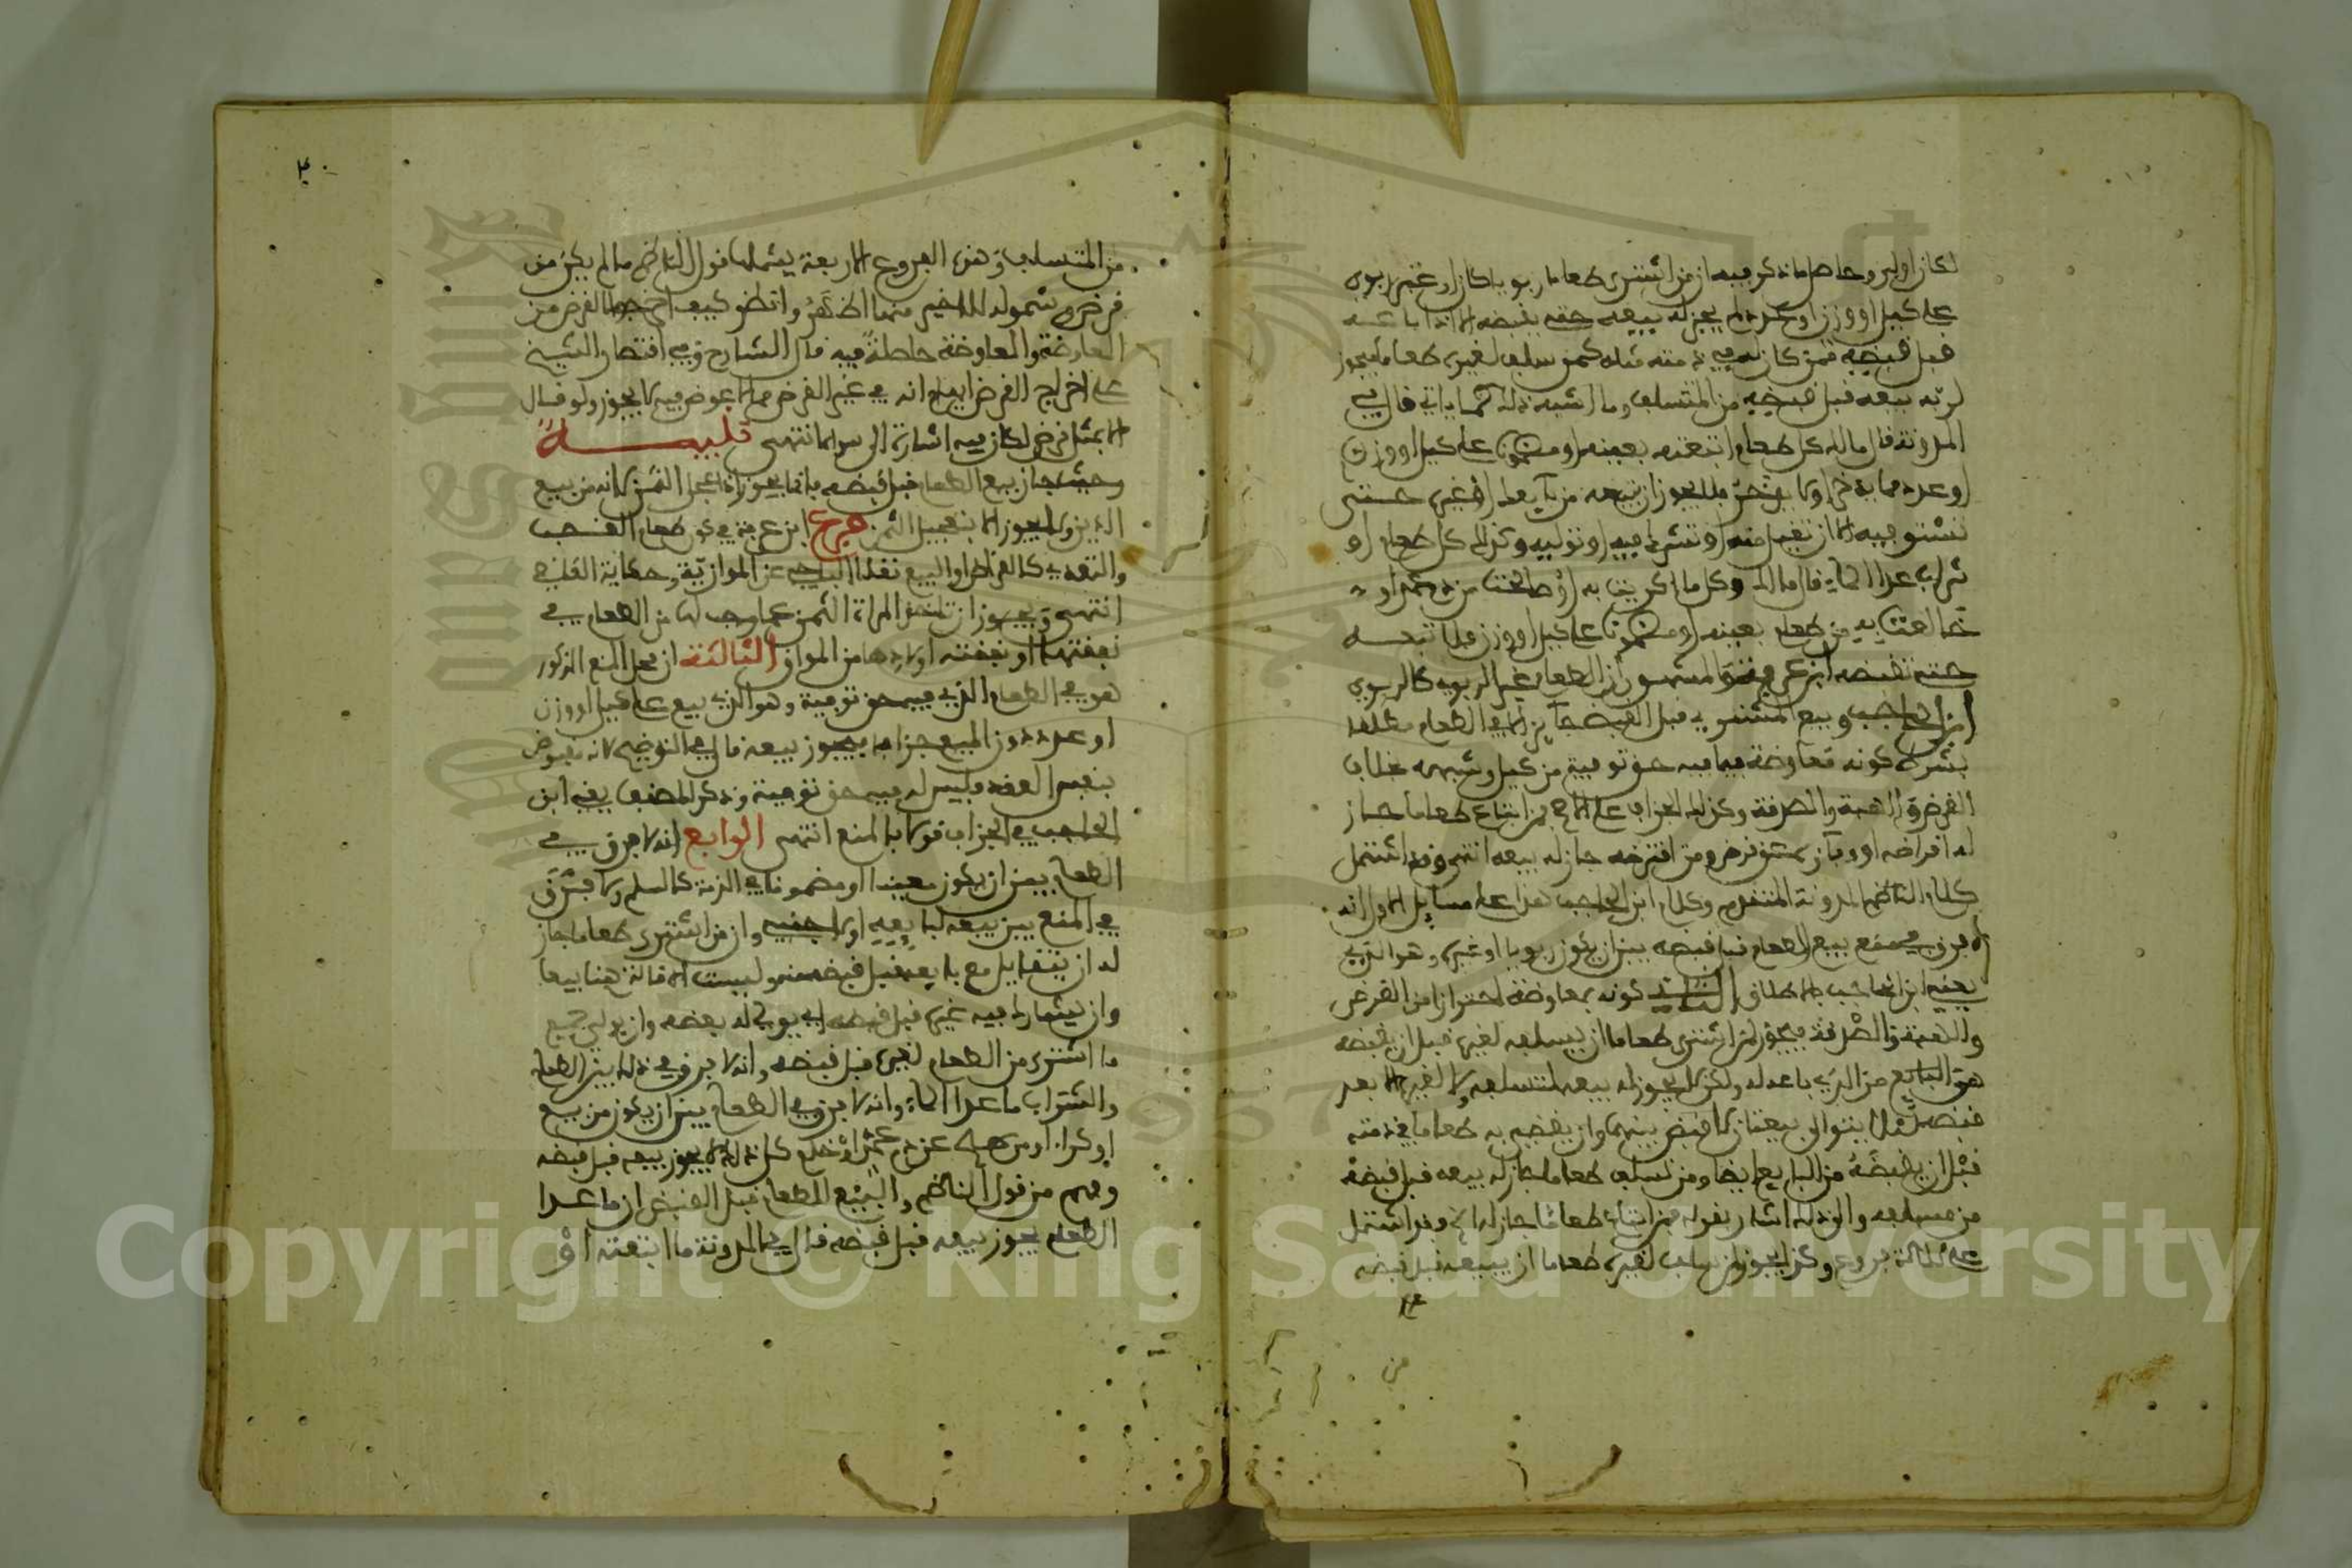 لكان اولى وحاصل ما ذكر فيه ان من اشترى طعاما ربويا كان او غير ربوي
على كيل او وزن او عدد لم يجز له بيعه حتى يقبضه الا اذا باعه
قبل قبضه ممن كان له في ذمته مثله كمن سلف لغيره طعاما فيجوز
لربه بيعه قبل قبضه من المتسلف وما اشبه ذلك كما ياتي قال في
المدونة قال مالك كل طعام ابتعته بعينه او مضمونا على كيل او وزن
او عدد مما يدخر او لا يدخر فلا يجوز ان تبيعه من بائعه او غيره حتى
تستوفيه الا ان تقيل منه او تشرك فيه او توليه وكذلك كل طعام او
شراب عدا الماء قال مالك وكل ما اكريت به او صالحت من دم عمد او
خالعت به من طعام بعينه او مضمونا على كيل او وزن فلا تبعه
حتى تقبضه ابن عرفة المشهور ان الطعام غير الربوي كالربوي
ابن الحاجب وبيع المشترى قبل القبض جائز الا في الطعام مطلقا
بشرط كونه معاوضة فيما فيه حق توفية من كيل وشبهه بخلاف
القرض والهبة والصدقة وكذلك الجزاف على الاصح فمن ابتاع طعاما جاز
له اقراضه او وفاؤه عن قرض ومن اقترضه جاز له بيعه انتهى وقد اشتمل
كلام الناظم والمدونة المتقدم وكلام ابن الحاجب هذا على مسايل الاولى انه
لا فرق في منع بيع الطعام قبل قبضه بين ان يكون ربويا او غيره وهو الذي
يعني ابن الحاجب بالاطلاق الثانية كونه بمعاوضة احترازا من القرض
والهبة والصدقة فيجوز لمن اشترى طعاما ان يسلفه لغيره قبل ان يقبضه
هو من البايع من الذي باعه له ولكن لا يجوز له بيعه لمتسلفه ولا لغيره الا بعد
قبضه لئلا يتوالى بيعتان لا قبض بينهما وان يقضي به طعاما في ذمته
قبل ان يقبضه من البايع ايضا ومن تسلف طعاما جاز له بيعه قبل قبضه
من مسلفه والى ذلك اشار بقوله فمن ابتاع طعاما جاز له الخ وقد اشتمل
على ثلاثة فروع وكذا يجوز لمن سلف لغيره طعاما ان يبيعه قبل قبضه
من
٣٠
من المتسلف وهذه الفروع الاربعة يشملها قول الناظم ما لم يكن من
قرض وشموله للاخير منها اظهر وانظر كيف اخرجوا القرض من
المعاوضة والمعاوضة حاصلة فيه قال الشارح وفي اقتصار الشيخ
على اخراج القرض ايهام انه في غير القرض مما لا عوض فيه لا يجوز ولو قال
الا بمثل قرض لكان فيه اشارة الى سواه انتهى تنبيه
وحيث جاز بيع الطعام قبل قبضه فانما يجوز اذا عجل الثمن لانه من بيع
الدين ولا يجوز الا بتعجيل الثمن فرع ابن عرفة في كون طعام الغصب
والتعدي كالقرض او البيع نقلا الباجي عن الموازية وحكاية القاضي
انتهى ويجوز ان تاخذ المراة الثمن عما وجب لها من الطعام في
نفقتها او نفقة اولادها من المواق الثالثة ان محل المنع المذكور
هو في الطعام الذي فيه حق توفية وهو الذي بيع على كيل او وزن
او عدد دون المبيع جزافا فيجوز بيعه قال في التوضيح لانه مقبوض
بنفس العقد فليس له فيه حق توفية وذكر المصنف يعني ابن
الحاجب في الجزاف قولا بالمنع انتهى الرابع انه لا فرق في
الطعام بين ان يكون معينا او مضمونا في الذمة كالسلم ولا فرق
في المنع بين بيعه لبايعه او لاجنبي وان من اشترى طعاما جاز
له ان يتقايل مع بايعه قبل قبضه منه وليست الاقالة هنا بيعا
وان يشارك فيه غيره قبل قبضه اي يولي له بعضه وان يولي جميع
ما اشترى من الطعام لغيره قبل قبضه وانه لا فرق في ذلك بين الطعام
والشراب ما عدا الماء وانه لا فرق في الطعام بين ان يكون من بيع
او كراء او من صلح عن دم عمد او خلع كل ذلك لا يجوز بيعه قبل قبضه
وفهم من قول الناظم والبيع للطعام قبل القبض ان ما عدا
الطعام يجوز بيعه قبل قبضه قال في المدونة ما ابتعته او
Copyright © King Saud University
1957